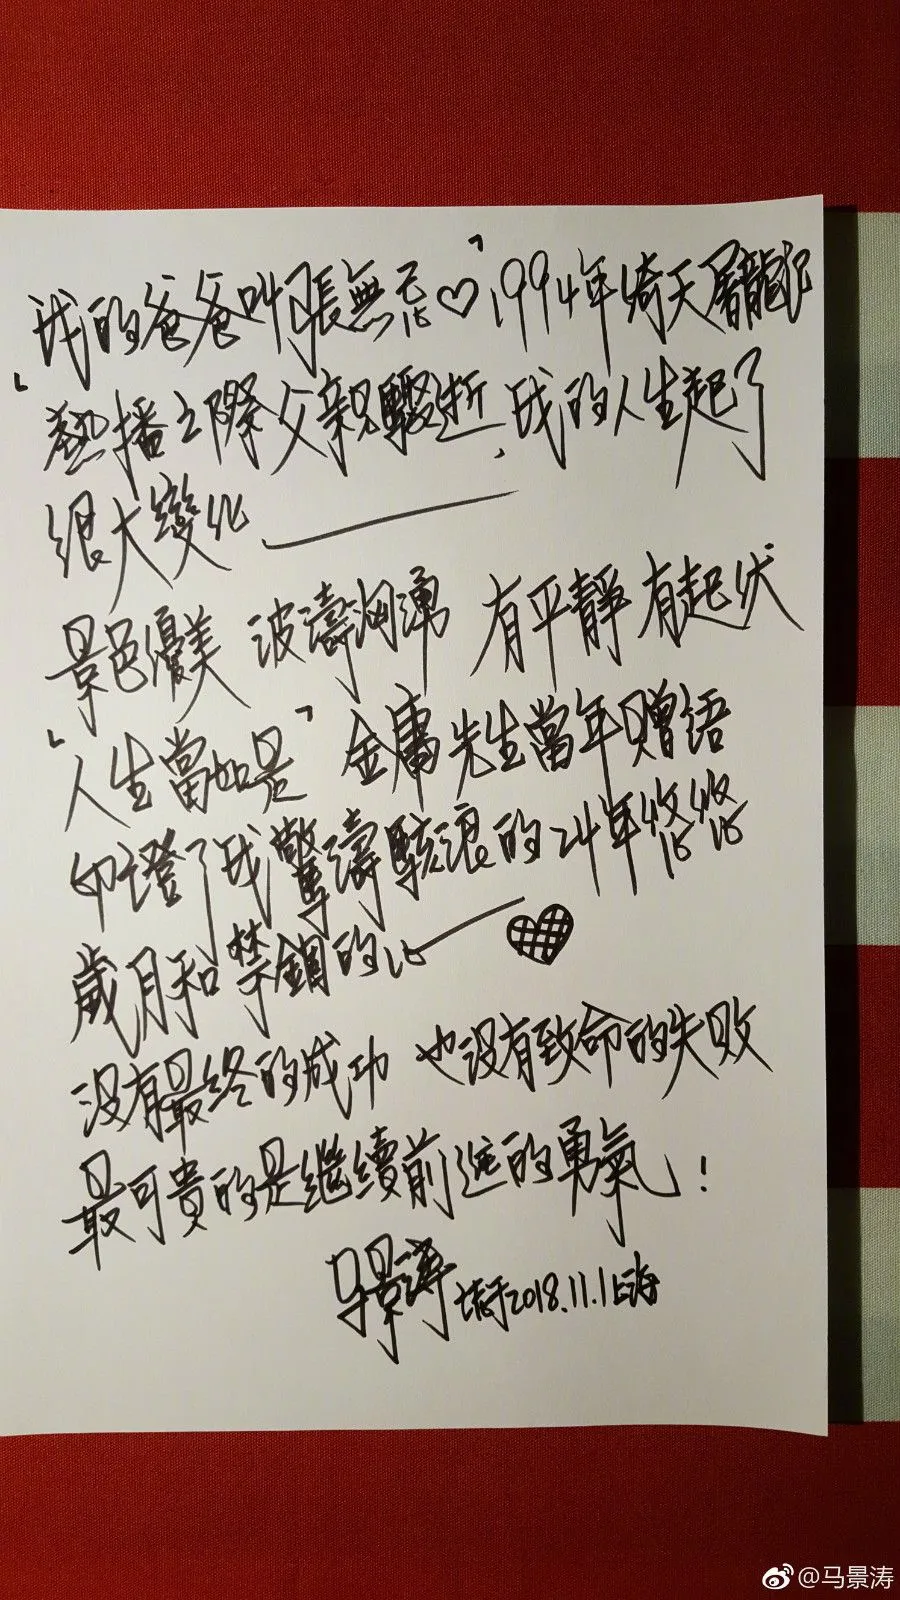 「我的爸爸叫張無忌♡」1994年倚天屠龍記
熱播之際父親驟逝,我的人生起了
很大變化
景色優美 波濤洶湧 有平靜有起伏
「人生當如是」金庸先生當年贈語
印證了我驚濤駭浪的24年悠悠
歲月和禁錮的心
沒有最終的成功 也沒有致命的失敗
最可貴的是繼續前進的勇氣!
馬景濤 書于2018.11.1上海
@马景涛